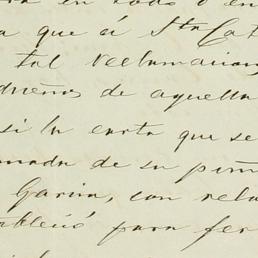 en todo o en
que á Sta Cat
tal reclamacion
dueños de aquella
si la carta que se
mada de su pu
Garcia, con rela
tableció para fer